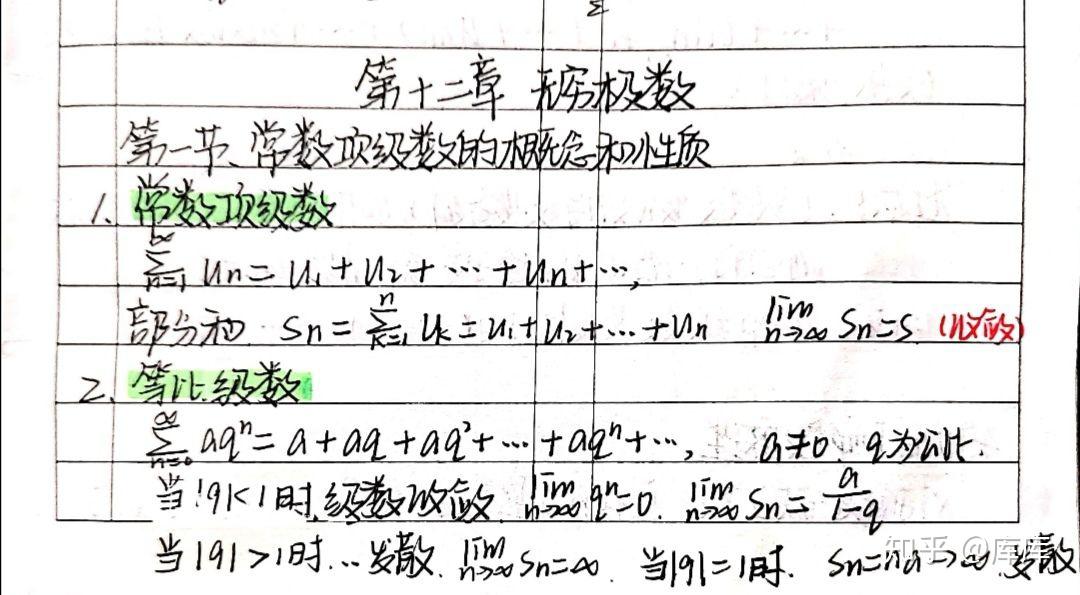 第十二章 无穷极数
第一节、常数项级数的概念和性质
1. 常数项级数
∑_{n=1}^{∞} uₙ = u₁ + u₂ + ⋯ + uₙ + ⋯,
部分和. Sₙ = ∑_{k=1}^{n} uₖ = u₁ + u₂ + ⋯ + uₙ lim_{n→∞} Sₙ = S. (收敛)
2. 等比级数
∑_{n=0}^{∞} aqⁿ = a + aq + aq² + ⋯ + aqⁿ + ⋯, a ≠ 0. q为公比.
当|q|<1时,级数收敛. lim_{n→∞} qⁿ = 0. lim_{n→∞} Sₙ = a/(1-q)
当|q|>1时. … 发散. lim_{n→∞} Sₙ = ∞. 当|q|=1时. Sₙ = na → ∞ 发散
知乎 @库库